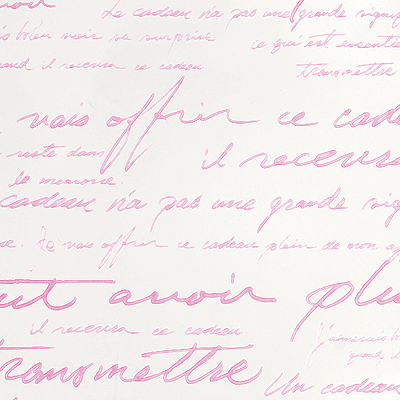 avoir
Le cadeau n'a pas une grande signif
is bien voir sa surprise ce qui est essentie
uand il recevra ce cadeau transmettre
vais offrir ce cade
reste dans il recevra
la memoire.
cadeau n'a pas une grande sig
re. Je vais offrir ce cadeau plein de mon aff
ut avoir plu
il recevra ce cadeau
J'aimerais b
quand il
transmettre
Un cadeau